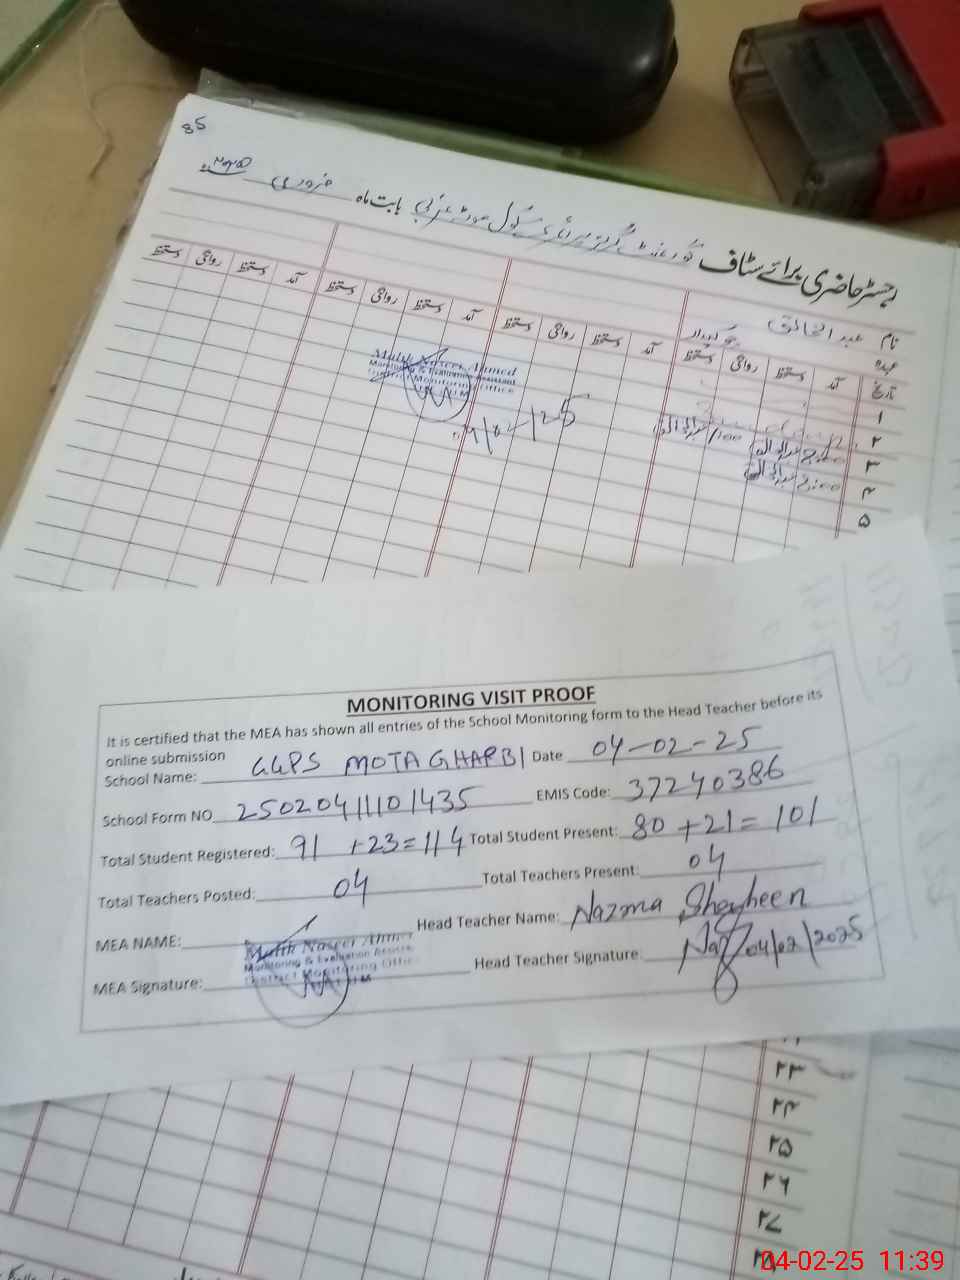 85
رجسٹر حاضری برائے سٹاف گورنمنٹ گرلز پرائمری سکول موٹہ غربی بابت ماہ فروری ۲۰۲۵
نام عبدالخالق
عہدہ چوکیدار
تاریخ آمد دستخط روانگی دستخط آمد دستخط روانگی دستخط آمد دستخط روانگی دستخط آمد دستخط روانگی دستخط
۱
۲ Sunday
۳ 8:00
۴ 8:00
۵
Malik Naseer Ahmed
Monitoring & Evaluation Assistant
District Monitoring Office
MONITORING VISIT PROOF
It is certified that the MEA has shown all entries of the School Monitoring form to the Head Teacher before its
online submission
School Name: GGPS MOTA GHARBI Date 04-02-25
School Form NO 25020411101435 EMIS Code: 37240386
Total Student Registered: 91 +23=114 Total Student Present: 80 +21= 101
Total Teachers Posted: 04 Total Teachers Present: 04
MEA NAME: Head Teacher Name: Nazma Shaheen
Malik Naseer Ahmed
Monitoring & Evaluation Assistant
District Monitoring Office
MEA Signature: Head Teacher Signature: Naz 04/02/2025
۲۳
۲۴
۲۵
۲۶
۲۷
۲۸
04-02-25 11:39